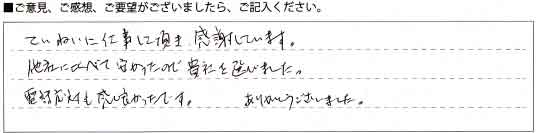 ■ご意見、ご感想、ご要望がございましたら、ご記入ください。
ていねいに仕事して頂き、感謝しています。
他社にくらべて安かったので貴社を選びました。
電話応対も感じ良かったです。　ありがとうございました。